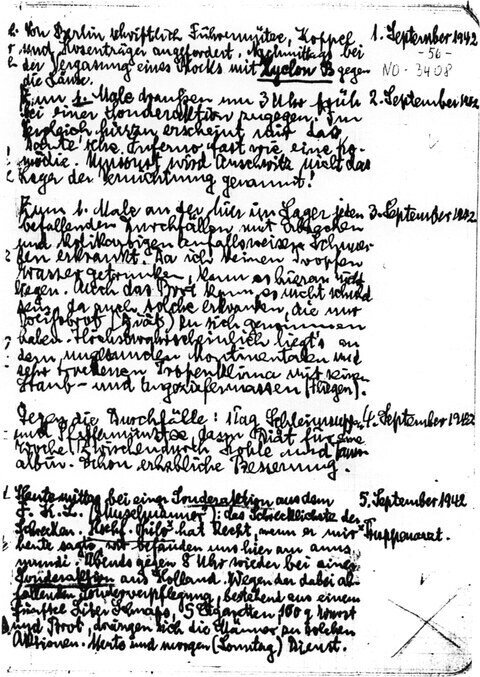 Von Berlin schriftlich Führermütze, Koppel 1. September 1942
und Hosenträger angefordert. Nachmittags bei - 56 -
der Vergasung eines Blocks mit Zyclon B gegen NO-3408
die Läuse.
Zum 1. Male draußen um 3 Uhr früh 2. September 1942
bei einer Sonderaktion zugegen. Im
Vergleich hierzu erscheint mir das
Dante'sche Inferno fast wie eine Ko-
mödie. Umsonst wird Auschwitz nicht das
Lager der Vernichtung genannt!
Zum 1. Male an der hier im Lager jeden 3. September 1942
befallenden Durchfällen mit Erbrechen
und kolikartigen anfallsweisen Schmer-
zen erkrankt. Da ich keinen Tropfen
Wasser getrunken, kann es hieran nicht
liegen. Auch das Brot kann es nicht schuld
sein, da auch solche erkranken, die nur
Weißbrot (Diät) zu sich genommen
haben. Höchstwahrscheinlich liegt's an
dem ungesunden kontinentalen und
sehr trockenen Tropenklima mit seinen
Staub- und Ungeziefermassen (Fliegen).
Gegen die Durchfälle: 1 Tag Schleimsuppe 4. September 1942
und Pfefferminztee, dann Diät für eine
Woche. Zwischendurch Kohle und Tann-
albin. Schon erhebliche Besserung.
Heute mittag bei einer Sonderaktion aus dem 5. September 1942
F.K.L. ("Muselmänner"): das Schrecklichste der
Schrecken. Hschf. Thilo hat Recht, wenn er mir Truppenarzt.
heute sagte, wir befänden uns hier am anus
mundi. Abends gegen 8 Uhr wieder bei einer
Sonderaktion aus Holland. Wegen der dabei ab-
fallenden Sonderverpflegung, bestehend aus einem
fünftel Liter Schnaps, 5 Zigaretten 100 g Wurst
und Brot, drängen sich die Männer zu solchen
Aktionen. Heute und morgen (Sonntag) Dienst.